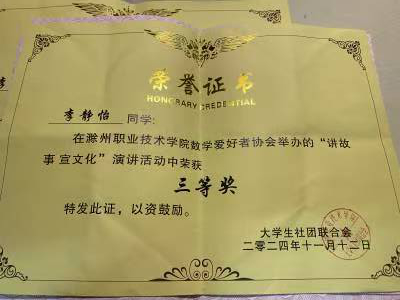 荣誉证书
HONORARY CREDENTIAL
李静怡 同学:
在滁州职业技术学院数学爱好者协会举办的“讲故
事宣文化”演讲活动中荣获
三等奖
特发此证，以资鼓励。
大学生社团联合会
二零二四年十一月十二日